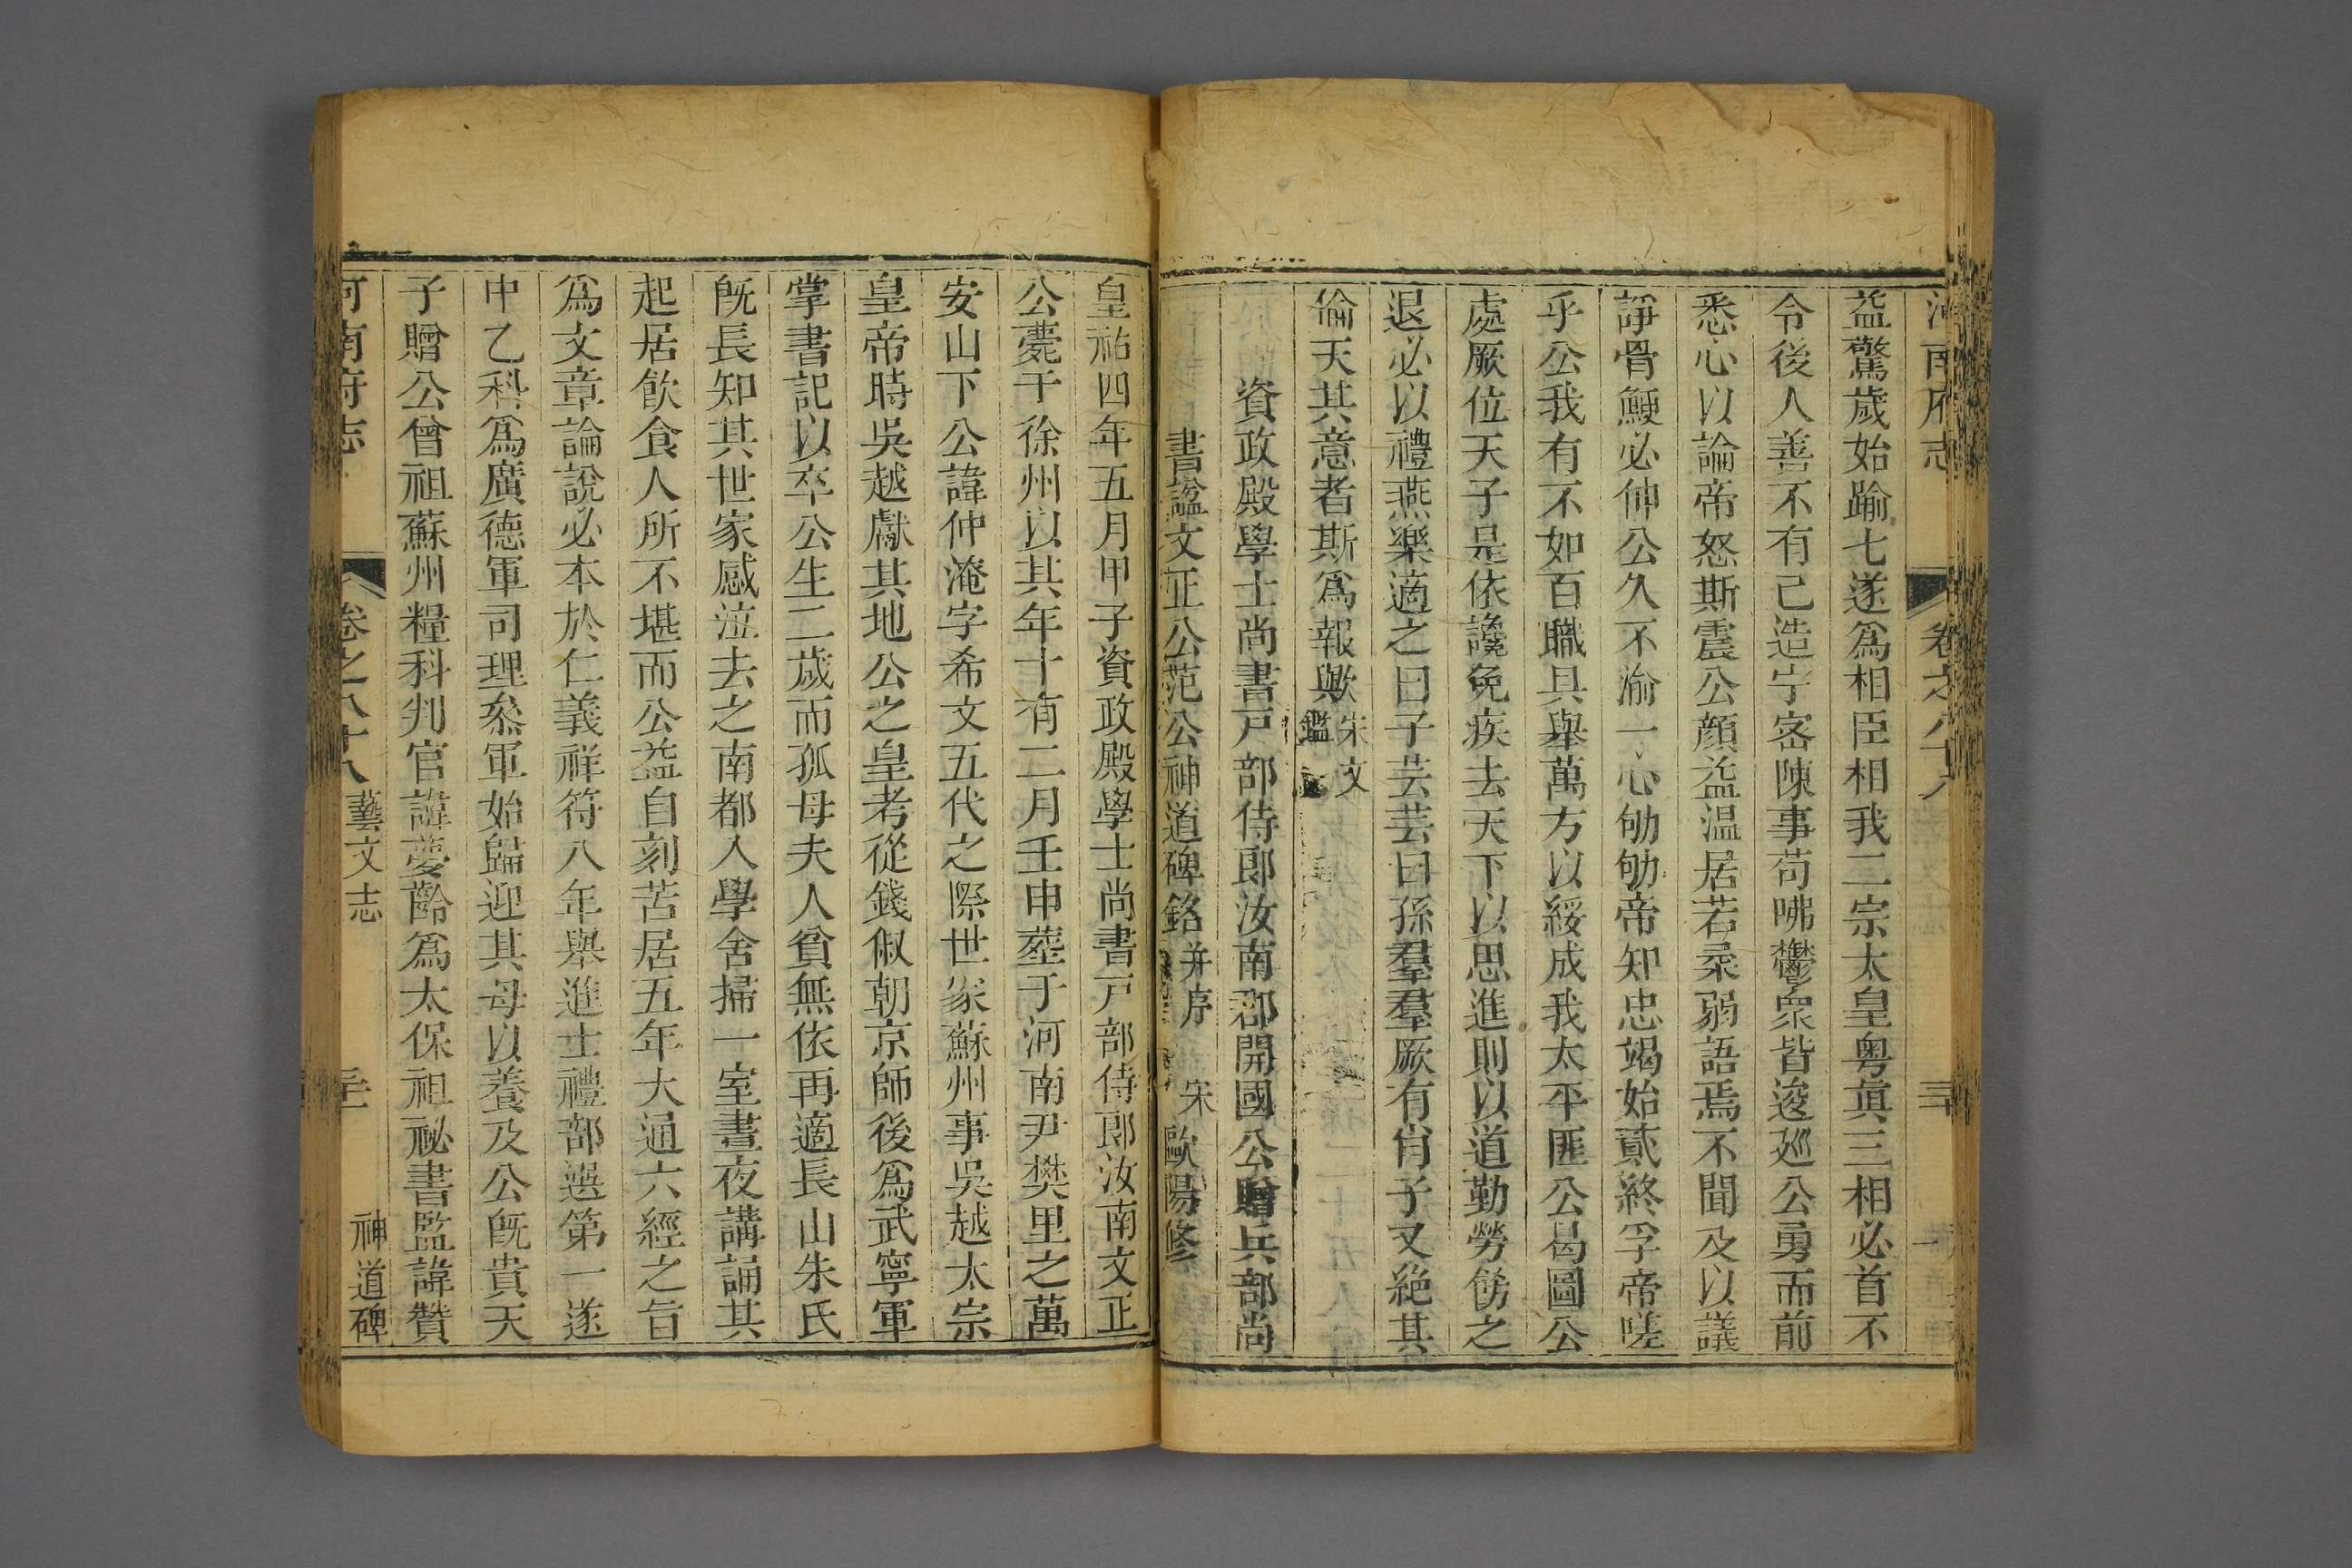 河南府志 卷之八十八
益驚歲始踰七遂爲相臣相我二宗太皇粵眞三相必首不
令後人善不有己造宁宻陳事苟咈鬱衆皆逡廵公勇而前
悉心以論帝怒斯震公顔益温居若柔弱語焉不聞及以議
諍骨鯁必伸公久不渝一心劬劬帝知忠竭始貳終孚帝嗟
乎公我有不如百職具舉萬方以綏成我太平匪公曷圖公
處厥位天子是依讒免疾去天下以思進則以道勤勞勞之
退必以禮燕樂適之曰子芸芸曰孫羣羣厥有肖子又絶其
倫天其意者斯爲報歟宋文鑑
資政殿學士尚書戸部侍郎汝南郡開國公贈兵部尚
書諡文正公范公神道碑銘并序 宋歐陽修
皇祐四年五月甲子資政殿學士尚書戸部侍郎汝南文正
公薨于徐州以其年十有二月壬申葬于河南尹樊里之萬
安山下公諱仲淹字希文五代之際世家蘇州事吳越太宗
皇帝時吳越獻其地公之皇考從錢俶朝京師後爲武寧軍
掌書記以卒公生二歲而孤母夫人貧無依再適長山朱氏
旣長知其世家感泣去之南都入學舍掃一室晝夜講誦其
起居飮食人所不堪而公益自刻苦居五年大通六經之旨
爲文章論說必本於仁義祥符八年舉進士禮部選第一遂
中乙科爲廣德軍司理叅軍始歸迎其母以養及公旣貴天
子贈公曾祖蘇州糧科判官諱夢齡爲太保祖祕書監諱贊
河南府志 卷之八十八 藝文志 神道碑